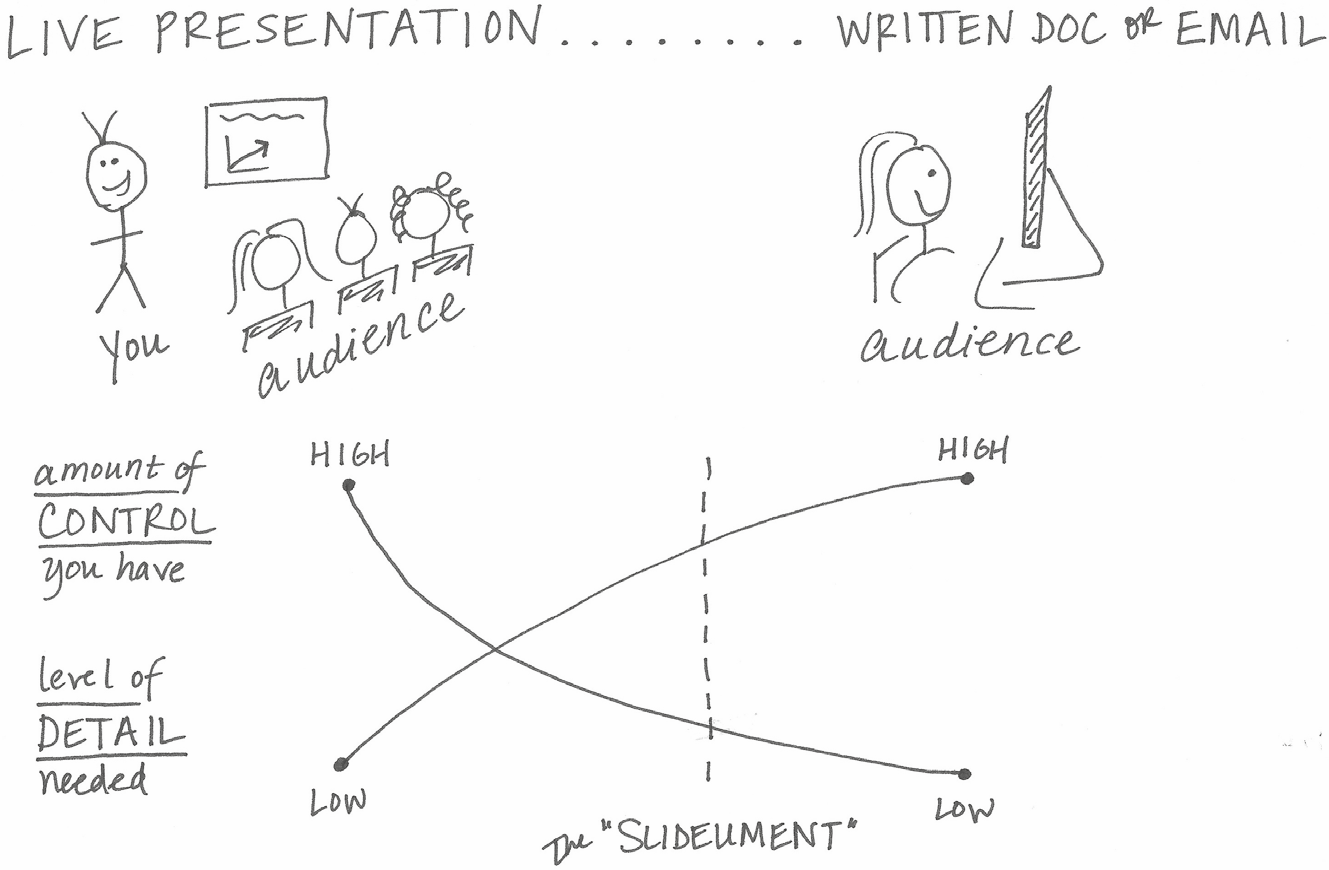 LIVE PRESENTATION........ WRITTEN DOC OR EMAIL
you
audience
audience
amount of
CONTROL
you have
HIGH
HIGH
level of
DETAIL
needed
LOW
LOW
The "SLIDEUMENT"